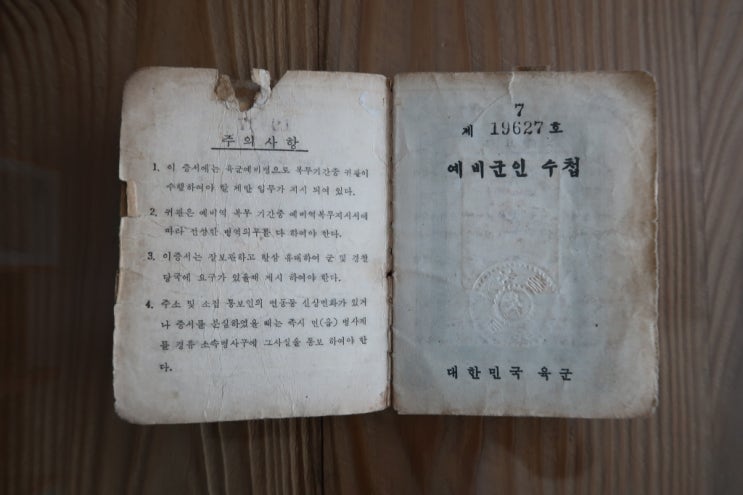 주의사항
1. 이 증서에는 육군예비병으로 복무기간중 귀관이
수행하여야 할 제반 임무가 지시 되여 있다.
2. 귀관은 예비역 복무 기간중 예비역복무지시서에
따라 진정한 병역의무를 다 하여야 한다.
3. 이증서는 잘보관하고 항상 휴대하여 군 및 경찰
당국에 요구가 있을때 제시 하여야 한다.
4. 주소 및 소집 통보인의 변동등 신상변화가 있거
나 증서를 분실하였을 때는 즉시 면(읍) 병사계
를 경유 소속병사구에 그사실을 통보 하여야 한
다.
7
제 19627 호
예비군인 수첩
대한민국 육군